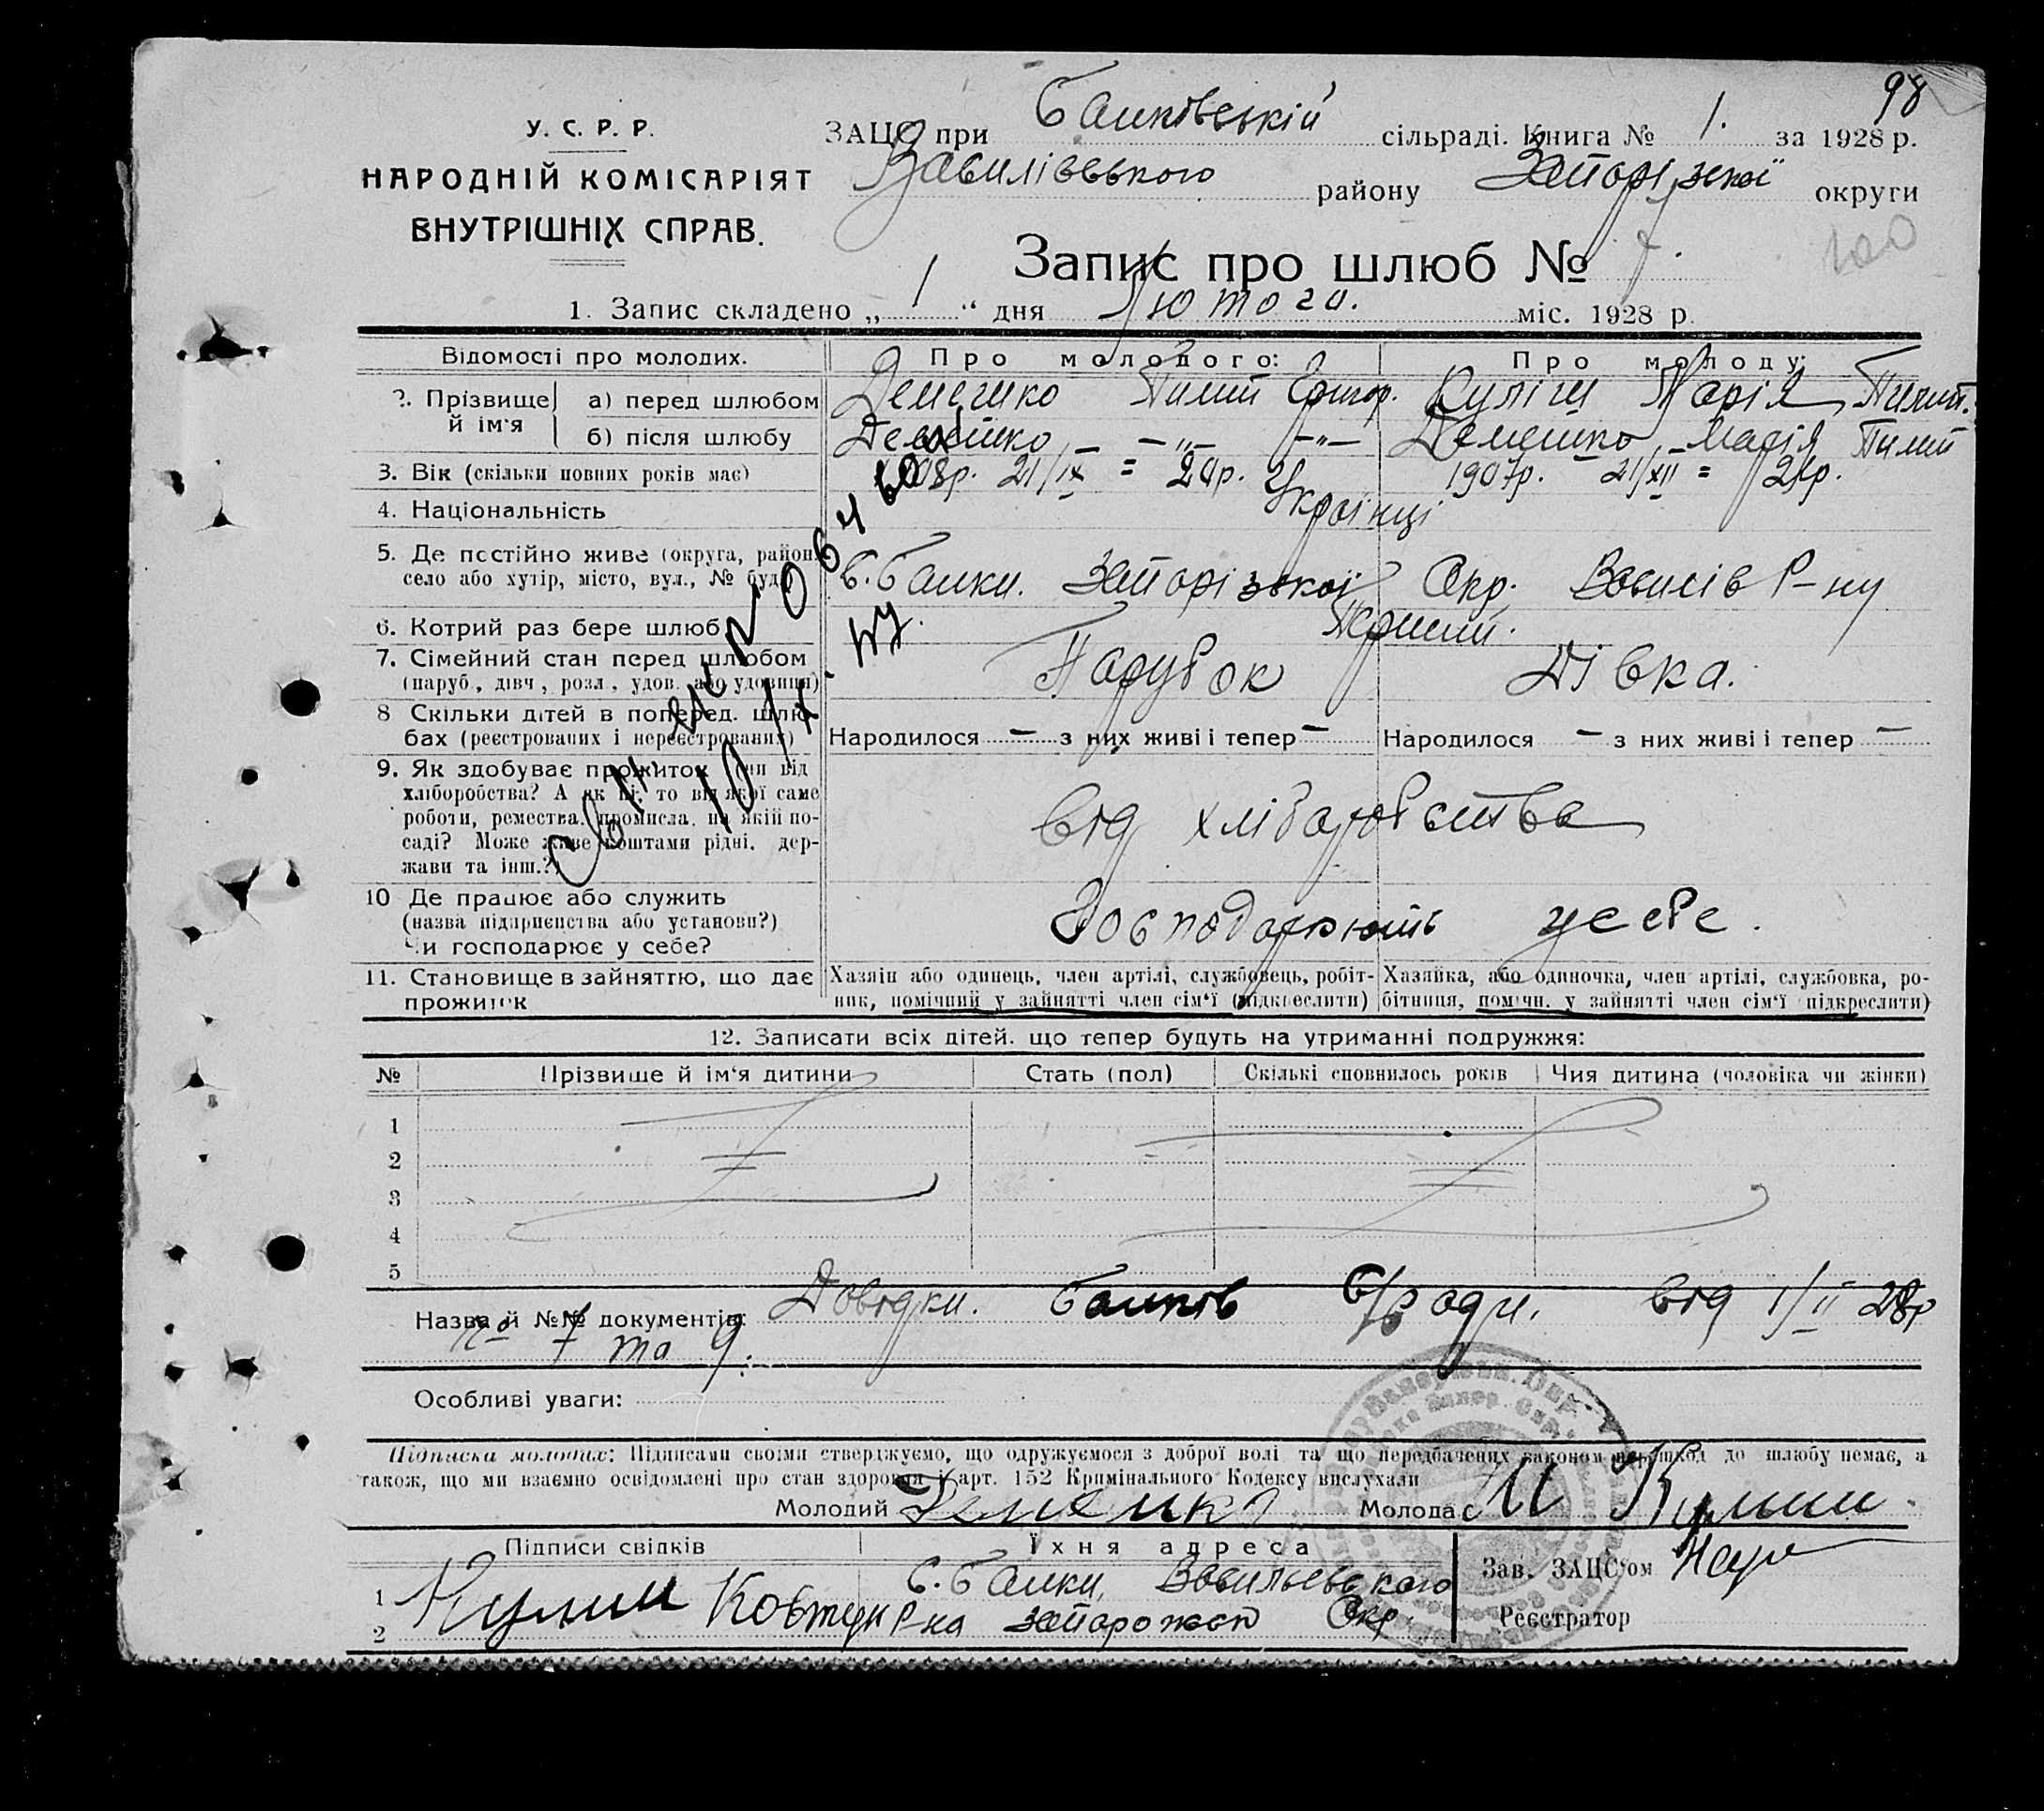 98
У. С. Р. Р.
НАРОДНІЙ КОМІСАРІЯТ
ВНУТРІШНІХ СПРАВ.
ЗАЦС при Балківській сільраді. Книга № 1. за 1928 р.
Василівського району Запорізької округи
100
Запис про шлюб № 7.
1. Запис складено „ 1 “ дня Лютого. міс. 1928 р.
Відомості про молодих. Про молодого: Про молоду:
2. Прізвище й ім‘я а) перед шлюбом Демешко Пилип Григор. Куліш Марія Пилип.
б) після шлюбу Демешко — „ — — „ — Демешко Марія Пилип
3. Вік (скільки повних років має) 1908р. 21/IX = 20р. 1907р. 21/XII = 21р.
4. Національність Українці
5. Де постійно живе (округа, район, село або хутір, місто, вул., № буд. с. Балки. Запорізької Окр. Василів Р-ну
6. Котрий раз бере шлюб Перший.
7. Сімейний стан перед шлюбом (паруб., дівч., розл., удов. або удовиця) Парубок Дівка.
8 Скільки дітей в поперед. шлюбах (реєстрованих і нереєстрованих) Народилося — з них живі і тепер — Народилося — з них живі і тепер —
9. Як здобуває прожиток (чи від
хліборобства? А як ні, то від якої саме
роботи, ремества, промисла, на якій по-
саді? Може живе коштами рідні, дер-
жави та інш.?)
від хліборобства
10 Де працює або служить
(назва підприємства або установи?)
Чи господарює у себе?
Господарюють у себе.
11. Становище в зайняттю, що дає прожиток
Хазяїн або одинець, член артілі, службовець, робіт-
ник, помічний у зайнятті член сім‘ї (підкреслити)
Хазяйка, або одиночка, член артілі, службовка, ро-
бітниця, помічн. у зайнятті член сім‘ї (підкреслити)
12. Записати всіх дітей, що тепер будуть на утриманні подружжя:
№ Прізвище й ім‘я дитини Стать (пол) Скількі сповнилось років Чия дитина (чоловіка чи жінки)
1
2
3
4
5
Назва й №№ документів: Довідки. Балків с/ради. від 1/II 28р
№ 7 та 9.
Особливі уваги:
Підписка молодих: Підписами своїми стверджуємо, що одружуємося з доброї волі та що передбачених законом перешкод до шлюбу немає, а
також, що ми взаємно освідомлені про стан здоровля і арт. 152 Кримінального Кодексу вислухали
Молодий Демешко Молода М Кулиш
Підписи свідків Їхня адреса
1 Кулиш Ковтун с. Балки, Васильевского
2 Р-на Запорожск Окр.
Зав. ЗАЦС‘ом
Реєстратор